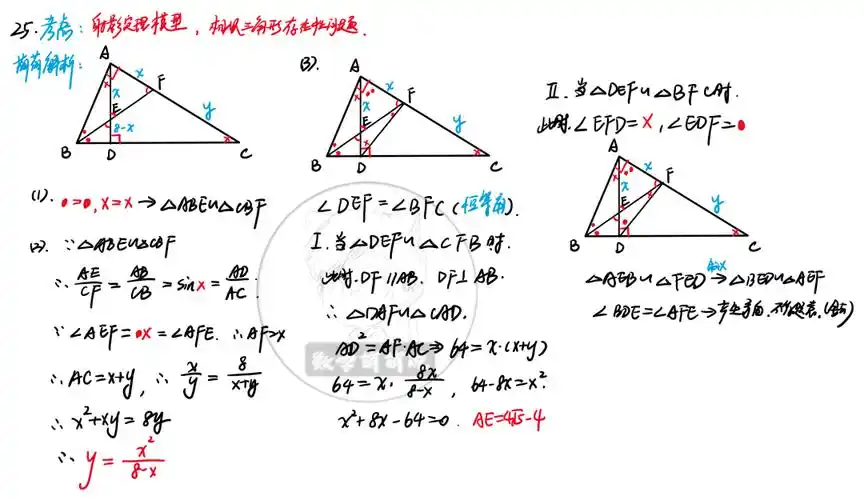 25.考点：射影定理模型，相似三角形存在性问题.
解析：
A
x
F
x
E
8-x
y
B
D
C
(1). ●=●, x=x → △ABE∽△CBF
(2). ∵△ABE∽△CBF
∴ AE/CF = AB/CB = sin x = AD/AC.
∵ ∠AEF=●x=∠AFE. ∴AF=x
∴AC=x+y, ∴ x/y = 8/(x+y)
∴ x²+xy=8y
∴ y = x²/(8-x)
(3).
A
x
F
x
E
y
B
D
C
∠DEF=∠BFC(恒等角).
I.当△DEF∽△CFB时.
此时.DF∥AB. DF⊥AB.
∴ △DAF∽△CAD.
AD²=AF·AC⇒64=x·(x+y)
64=x· 8x/(8-x), 64-8x=x².
x²+8x-64=0. AE=4√5-4
II.当△DEF∽△BFC时.
此时.∠EFD=x,∠EDF=●
A
x
F
x
E
y
B
D
C
△AEB∽△FED → △BED∽△AEF
∠BDE=∠AFE→产生矛盾.不存在.
数学